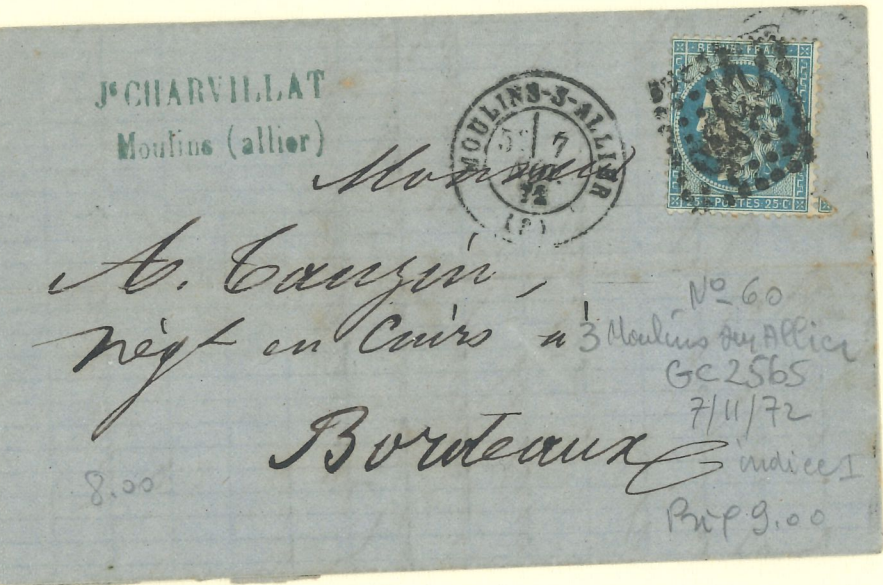 Jh CHARVILLAT
Moulins (allier)
MOULINS-S-ALLIER
7
72
(3)
REPUB. FRANC.
25 POSTES 25 C
Monsieur
A. Tauzin,
négt en Cuirs à
Bordeaux
No 60
3 Moulins sur Allier
GC 2565
7/11/72
indice 1
Prix 9.00
8.00